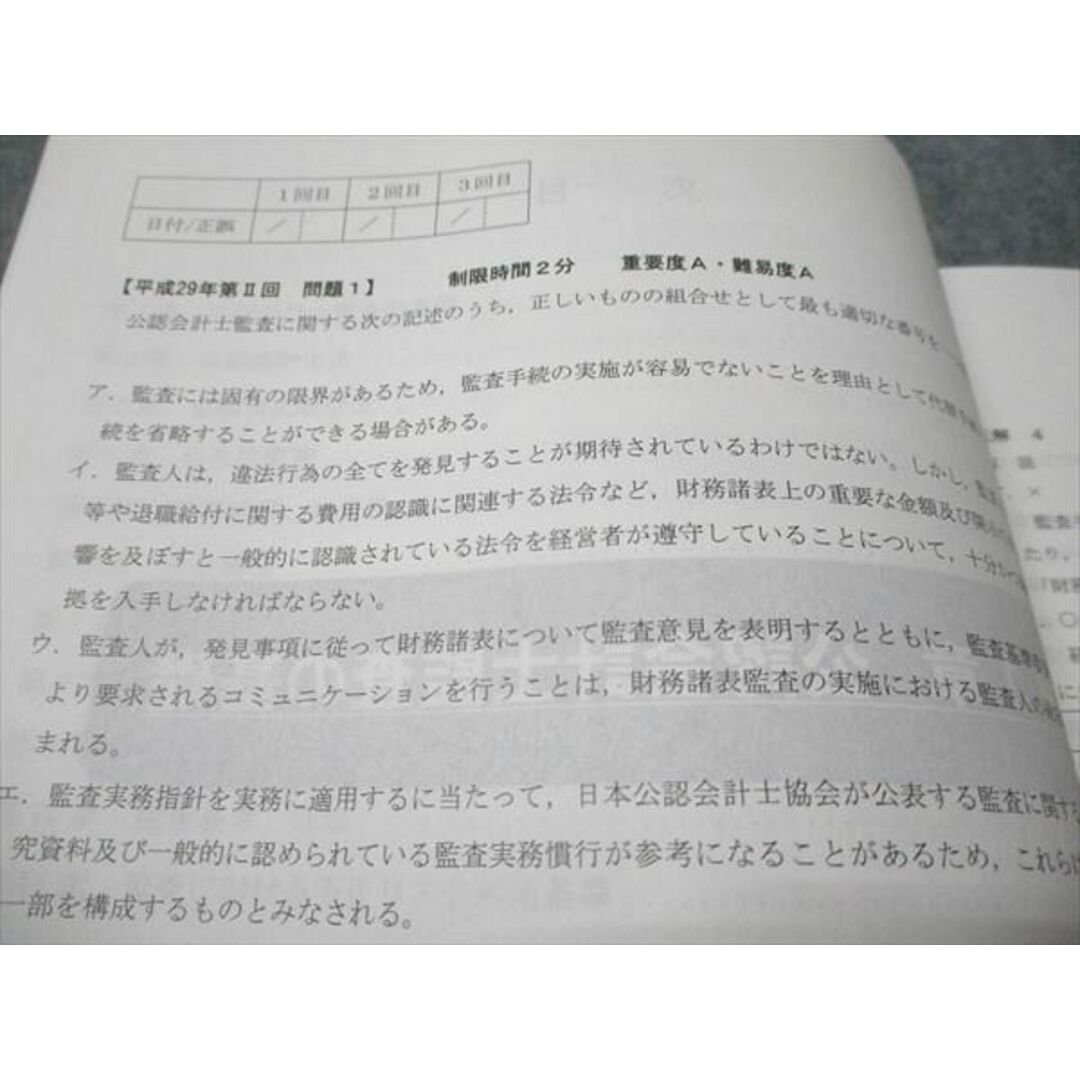 1回目 2回目 3回目
日付/正誤 / / /
【平成29年第Ⅱ回 問題1】 制限時間2分 重要度A・難易度A
公認会計士監査に関する次の記述のうち，正しいものの組合せとして最も適切な番号を一
ア．監査には固有の限界があるため，監査手続の実施が容易でないことを理由として代替
続を省略することができる場合がある。
イ．監査人は，違法行為の全てを発見することが期待されているわけではない。しかし，
等や退職給付に関する費用の認識に関連する法令など，財務諸表上の重要な金額及び
響を及ぼすと一般的に認識されている法令を経営者が遵守していることについて，十分
拠を入手しなければならない。
ウ．監査人が，発見事項に従って財務諸表について監査意見を表明するとともに，監査基準
より要求されるコミュニケーションを行うことは，財務諸表監査の実施における監査人の
まれる。
エ．監査実務指針を実務に適用するに当たって，日本公認会計士協会が公表する監査に関する
究資料及び一般的に認められている監査実務慣行が参考になることがあるため，これらは
一部を構成するものとみなされる。
解 4
×
監査
たり，
○